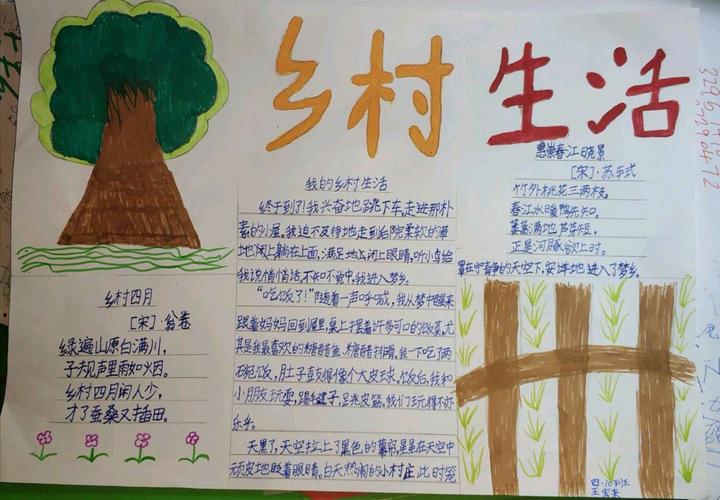 乡村生活
乡村四月
[宋]·翁卷
绿遍山原白满川，
子规声里雨如烟。
乡村四月闲人少，
才了蚕桑又插田。
我的乡村生活
终于到了！我兴奋地跳下车，走进那朴
素的小屋。我迫不及待地走到后院柔软的
地上躺在上面，满足地闭上眼睛，听小鸟给
我说悄悄话，不知不觉中，我进入了梦乡。
“吃饭了！”随着一声呼喊，我从梦中醒来
跟着妈妈回到屋里，桌上摆着许多可口的饭菜，尤
其是我最喜欢的糖醋鱼、糖醋排骨，我一下吃了两
碗饭，肚子直撑得像个大皮球。饭后，我和
小朋友玩耍，踢毽子，跳皮筋，我们玩得不亦
乐乎。
天黑了，天空拉上了黑色的幕帘，星星在天空中
顽皮地眨着眼睛。白天热闹的小村庄此时笼
惠崇春江晓景
[宋]·苏轼
竹外桃花三两枝，
春江水暖鸭先知。
蒌蒿满地芦芽短，
正是河豚欲上时。
罩在宁静的天空下，安详地进入了梦乡。
四·10班